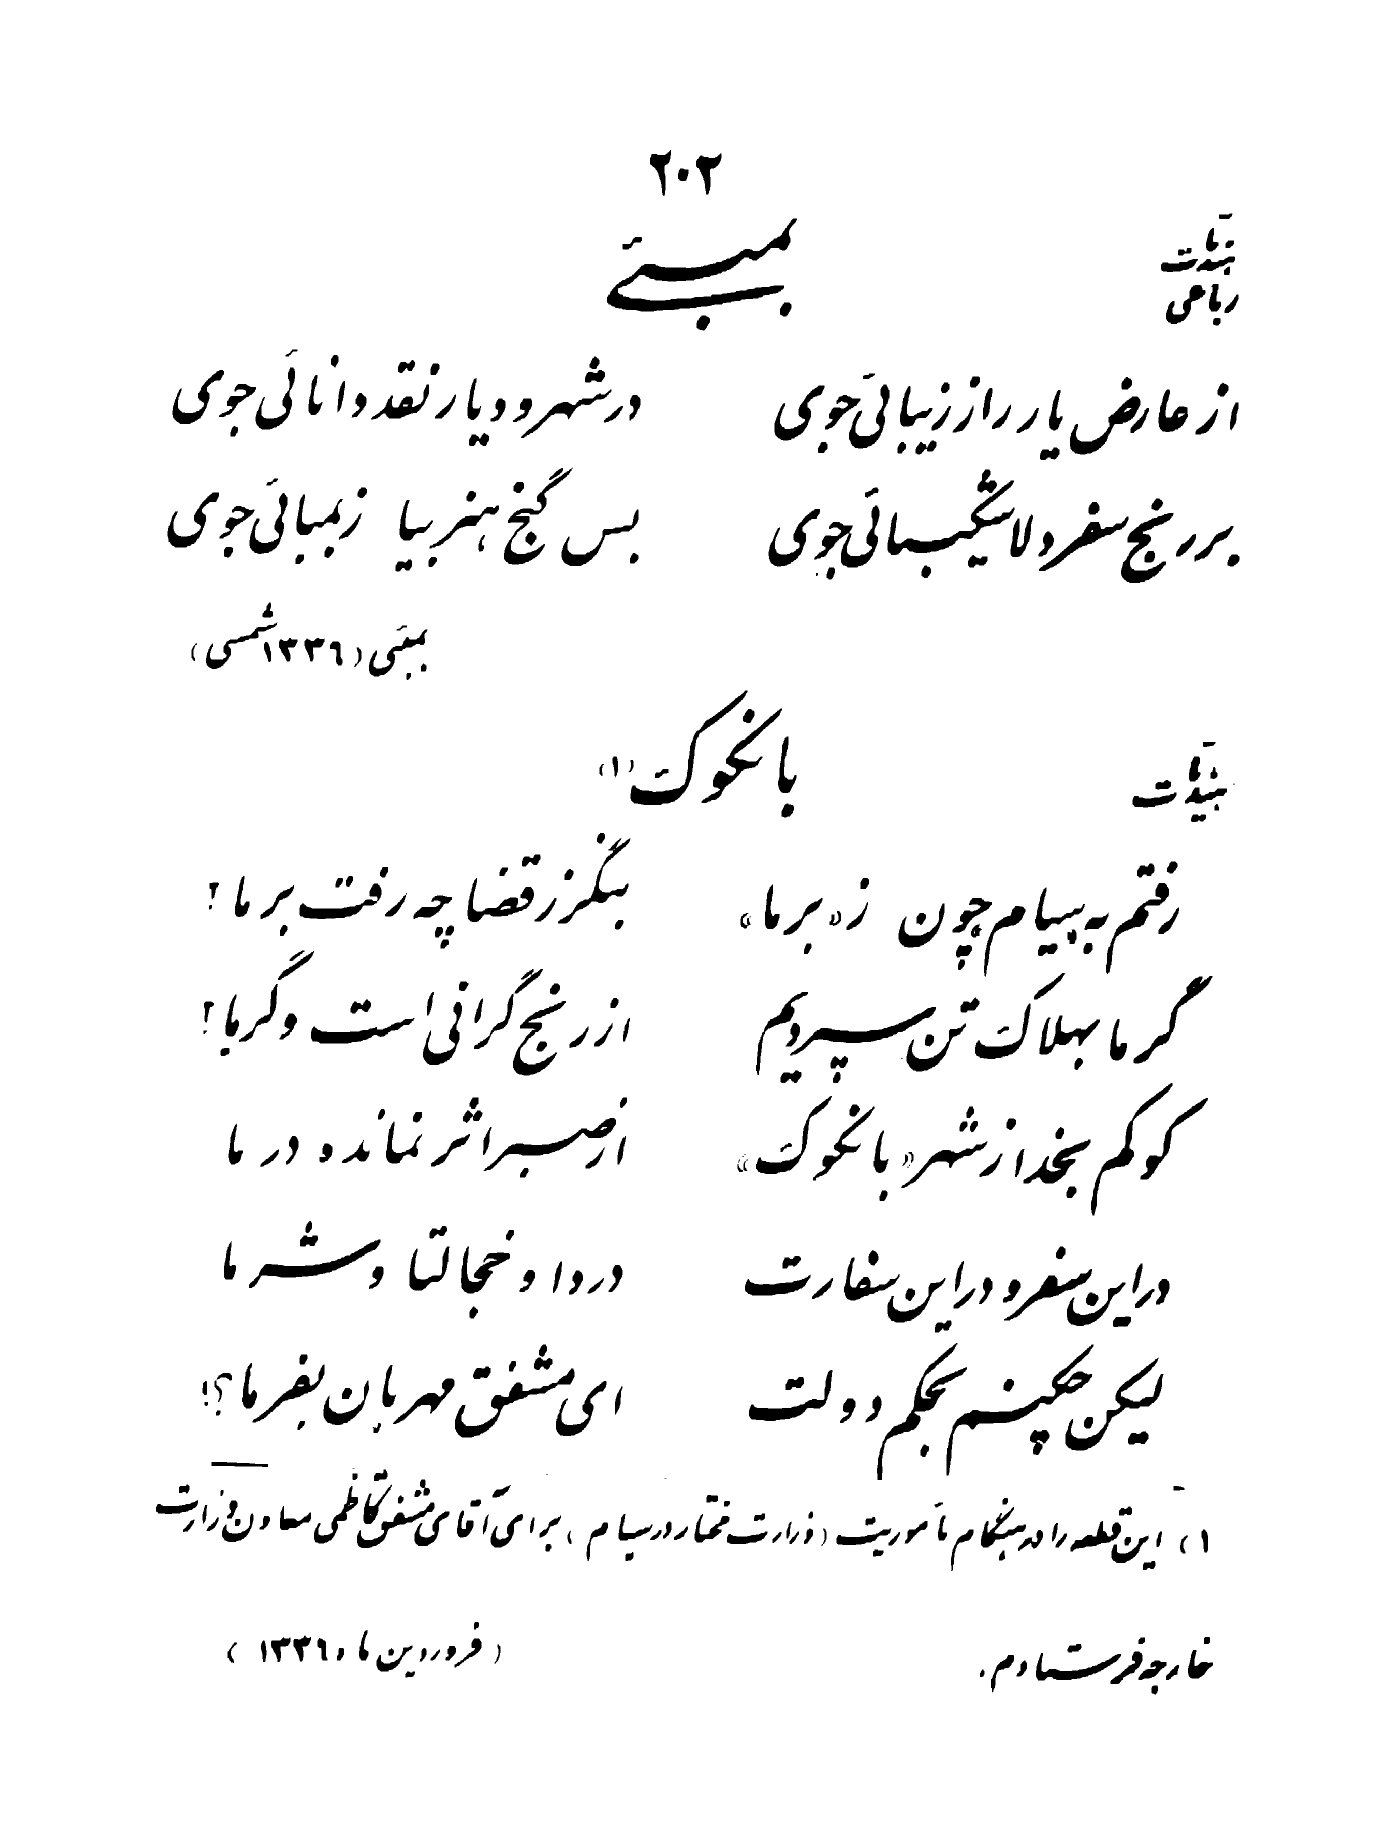 ۲۰۲
بمبئی
رباعی
از عارض یار راز زیبائی جوی در شهر و دیار نقد دانائی جوی
بر رنج سفر دلا شکیبائی جوی بس گنج هنر بیا ز بمبائی جوی
بمبئی (۱۳۳۹ شمسی)
بانکوک (۱)
رفتم به سیام چون ز «برما» بنگر ز قضا چه رفت بر ما!
گر ما بهلاک تن سپردیم از رنج گرافی است و گرما!
کو کم بخدا ز شهر «بانکوک» از صبر اثر نمانده در ما
در این سفر و در این سفارت دردا و خجالتا و شرما
لیکن چکنیم بحکم دولت ای مشفق مهربان بفرما؟!
۱) این قطعه را در هنگام مأموریت (وزارت مختار در سیام) برای آقای مشفق کاظمی معاون وزارت
خارجه فرستادم. (فروردین ماه ۱۳۳۹)